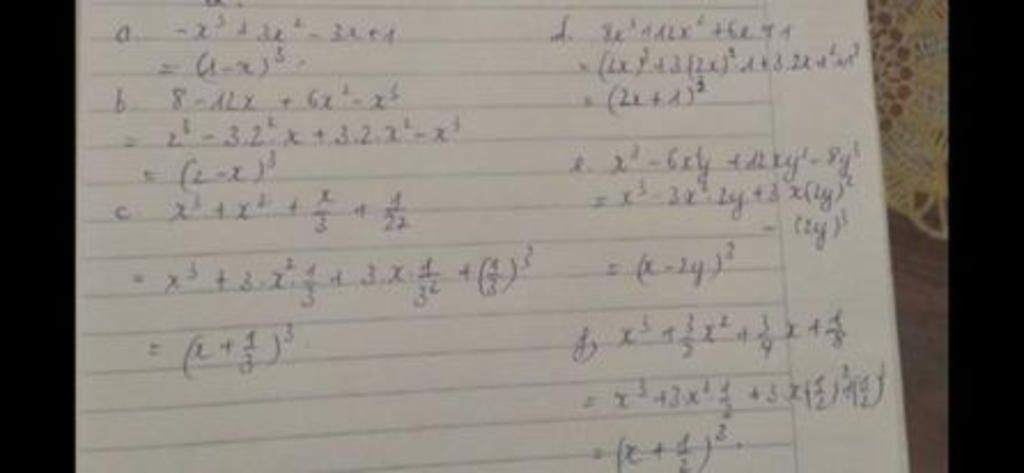 a. -x³ + 3x² - 3x + 1
= (1-x)³.
b. 8 - 12x + 6x² - x³
= 2³ - 3.2².x + 3.2.x² - x³
= (2-x)³
c. x³ + x² + x/3 + 1/27
= x³ + 3.x².1/3 + 3.x.1/3² + (1/3)³
= (x + 1/3)³
d. 8x³ + 12x² + 6x + 1
= (2x)³ + 3.(2x)².1 + 3.2x.1² + 1³
= (2x+1)³
e. x³ - 6x²y + 12xy² - 8y³
= x³ - 3x².2y + 3x(2y)²
- (2y)³
= (x-2y)³
f, x³ + 3/2x² + 3/4x + 1/8
= x³ + 3x².1/2 + 3.x(1/2)² + (1/2)³
= (x + 1/2)³.